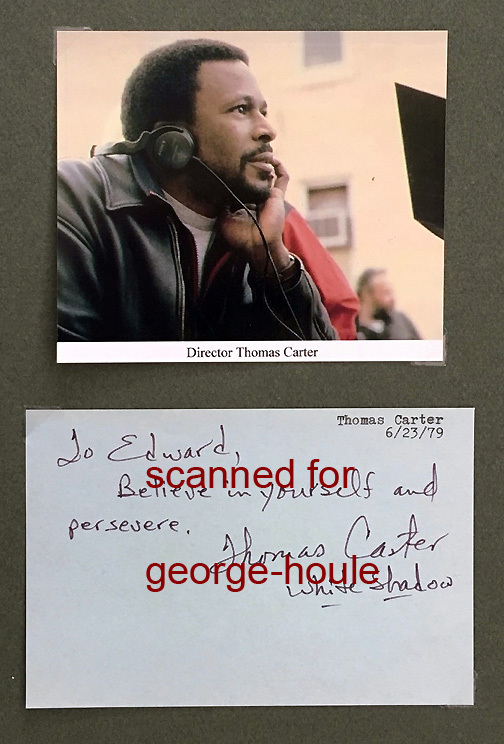 Director Thomas Carter
Thomas Carter
6/23/79
To Edward,
Believe in yourself and
persevere.
Thomas Carter
White Shadow
scanned for
george-houle